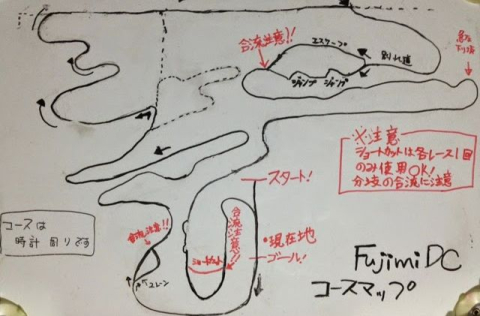 合流注意!!
エスケープ
別れ道
ジャンプ ジャンプ
※注意
ショートカットは各レース1回
のみ使用OK!
分岐の合流に注意
スタート!
コースは
時計回りです
合流注意!!
合流注意!!
・現在地
ゴール!
ショートカット
FujimiDC
コースマップ